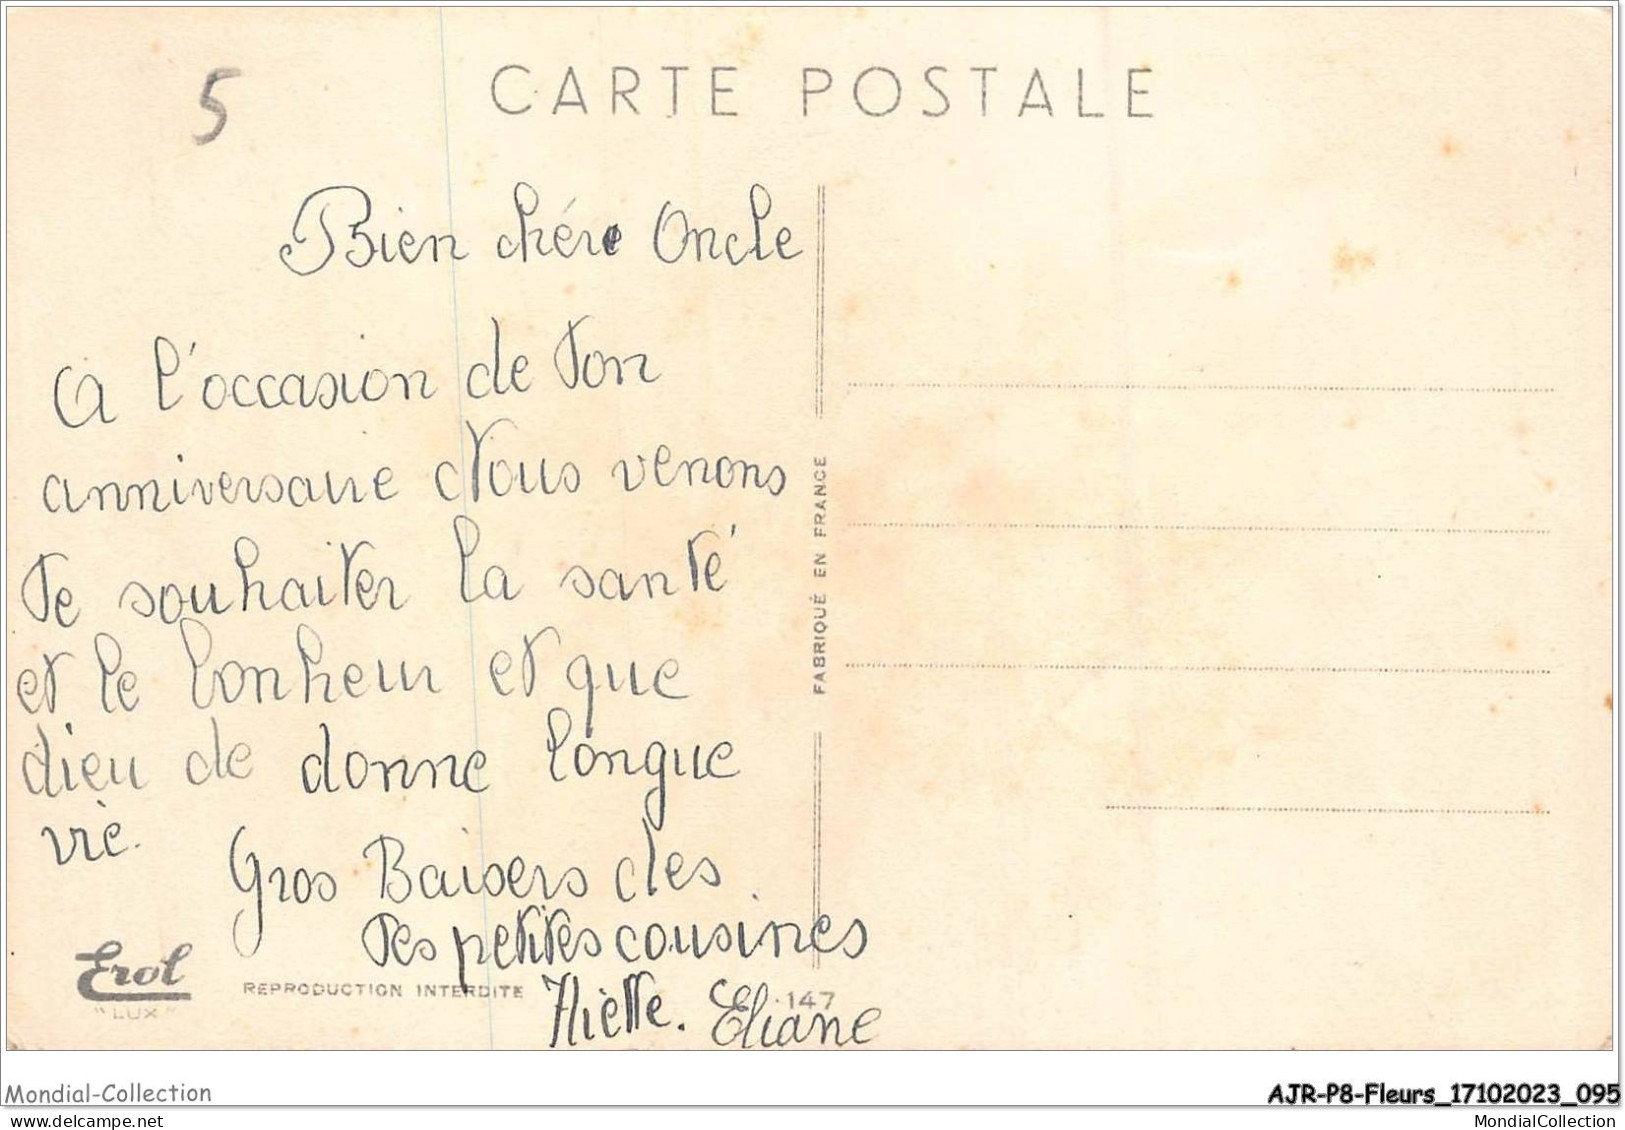 5
CARTE POSTALE
Bien chére Oncle
A l'occasion de ton
anniversaire Nous venons
te souhaiter la santé
et le bonheur et que
dieu de donne longue
vie.
Gros Baisers des
tes petites cousines
Eliane
FABRIQUÉ EN FRANCE
Erol
"LUX"
REPRODUCTION INTERDITE
147
Mondial-Collection
AJR-P8-Fleurs_17102023_095
MondialCollection.net
MondialCollection